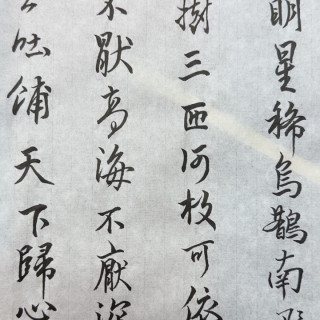 明星稀烏鵲南飛
樹三匝何枝可依
不厭高海不厭深
吐哺天下歸心